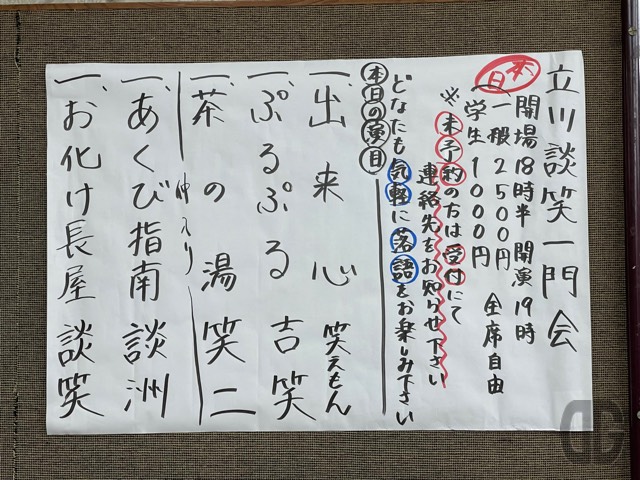 立川談笑一門会
本日
開場18時半 開演19時
一般2500円 全席自由
学生1000円
※未予約の方は受付にて
連絡先をお知らせ下さい
どなたも気軽に落語をお楽しみ下さい
本日の演目
一、出来心 笑えもん
一、ぷるぷる 吉笑
一、茶の湯 笑二
仲入り
一、あくび指南 談洲
一、お化け長屋 談笑
DG